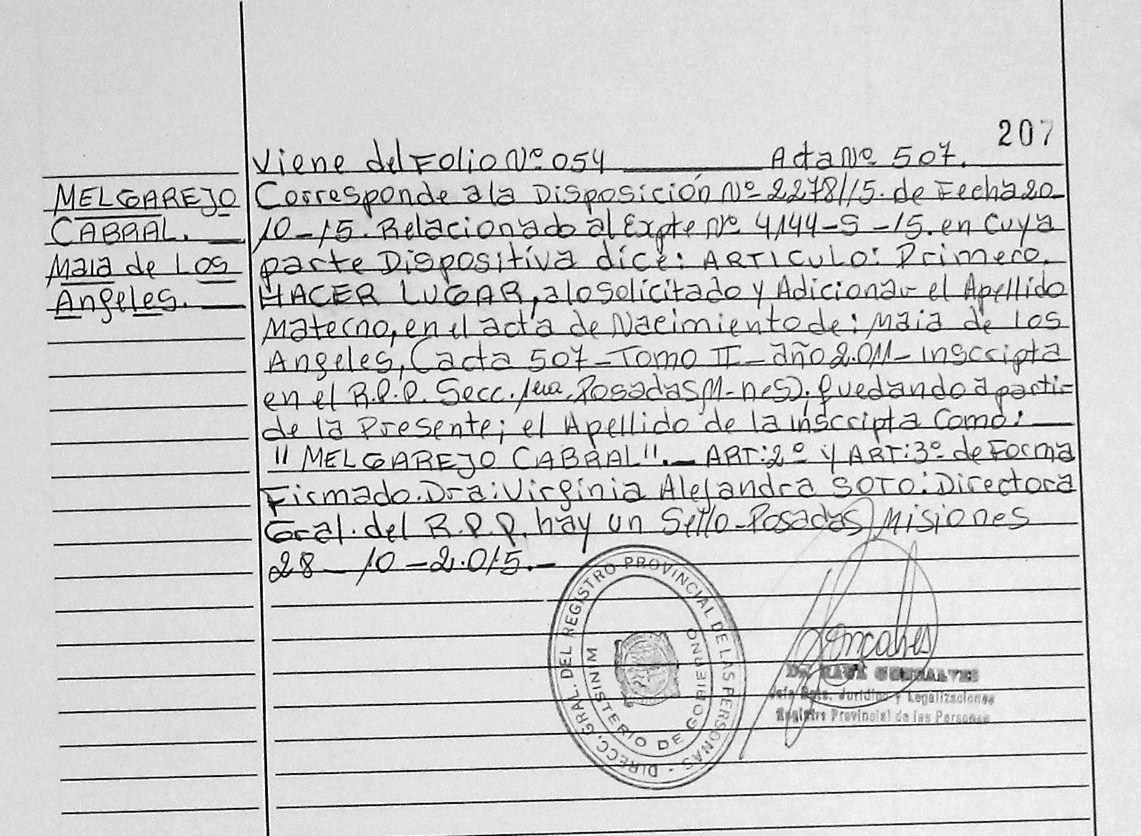 207
Viene del Folio Nº 054 Acta Nº 507.
MELGAREJO
CABRAL.
Maia de Los
Angeles.
Corresponde a la Disposición Nº 2278/15. de Fecha 20-
10-15. Relacionado al Expte Nº 4144-S-15. en Cuya
parte Dispositiva dice: ARTICULO: Primero.
HACER LUGAR, a lo Solicitado y Adicionar el Apellido
Materno, en el acta de Nacimiento de: Maia de los
Angeles, (acta 507-Tomo II-año 2.011-inscripta
en el R.P.P. Secc. 1era. Posadas M-nes). quedando a partir
de la Presente; el Apellido de la inscripta Como:
"MELGAREJO CABRAL". ART: 2º y ART: 3º de Forma
Firmado. Dra: Virginia Alejandra SOTO: Directora
Gral. del R.P.P. hay un Sello-Posadas, Misiones
28-10-2.015.-
DIRECC. GRAL. DEL REGISTRO PROVINCIAL DE LAS PERSONAS -
MINISTERIO DE GOBIERNO
Gonçalves
Dr. RAUL GONSALVES
Jefe Dpto. Jurídico y Legalizaciones
Registro Provincial de las Personas